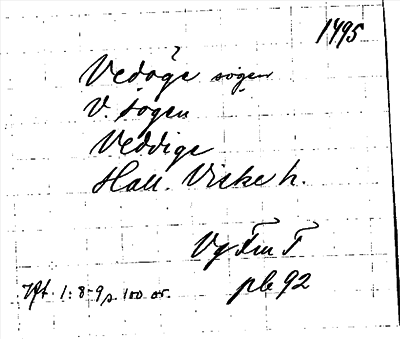 1495
?
Vedöge sogen
V. sogen
Veddige
Hall. Viske h.
Vg Fm T
ple 92
Hft. 1: 8-9 s. 100 or.